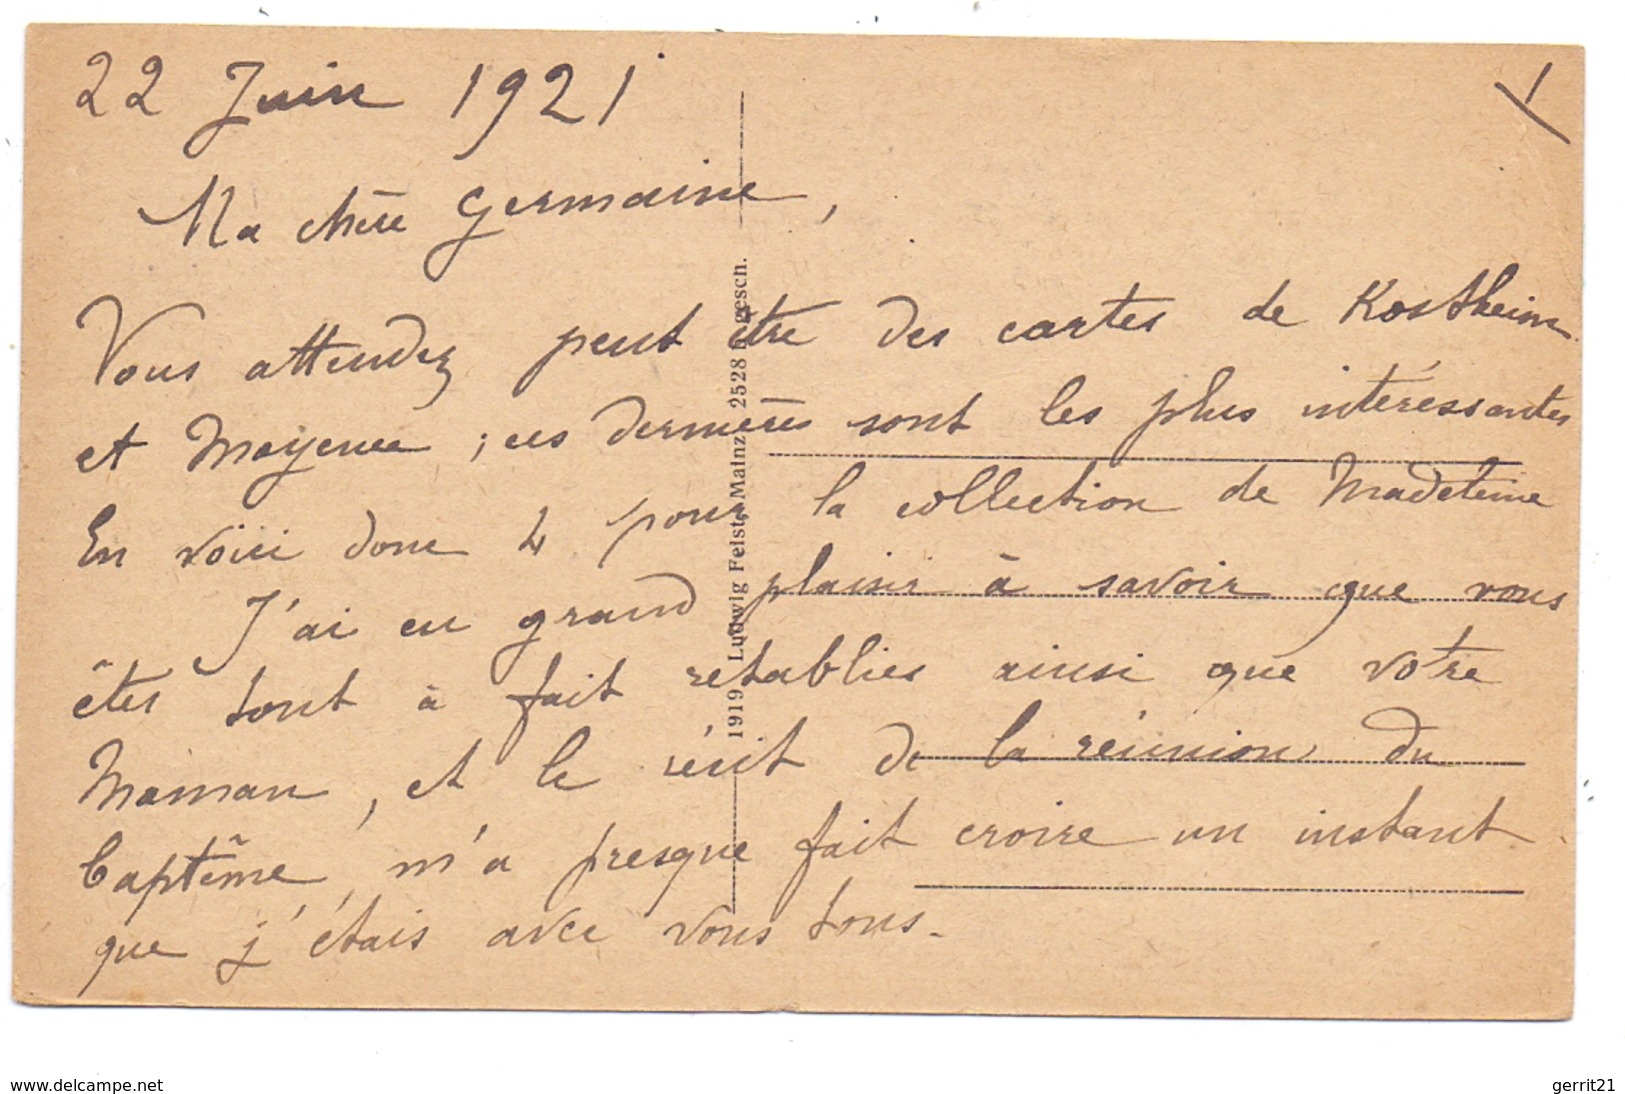 22 Juin 1921
Ma chère Germaine,
Vous attendez peut être des cartes de Kostheim
et Mayence ; ces dernières sont les plus intéressantes
En voici donc 4 pour la collection de Madeleine
J'ai eu grand plaisir à savoir que vous
êtes tout à fait rétablies ainsi que votre
Maman, et le récit de la réunion du
baptême, m'a presque fait croire un instant
que j'étais avec vous tous.
1
1919 Ludwig Feist, Mainz 2528 gesch.
www.delcampe.net
gerrit21